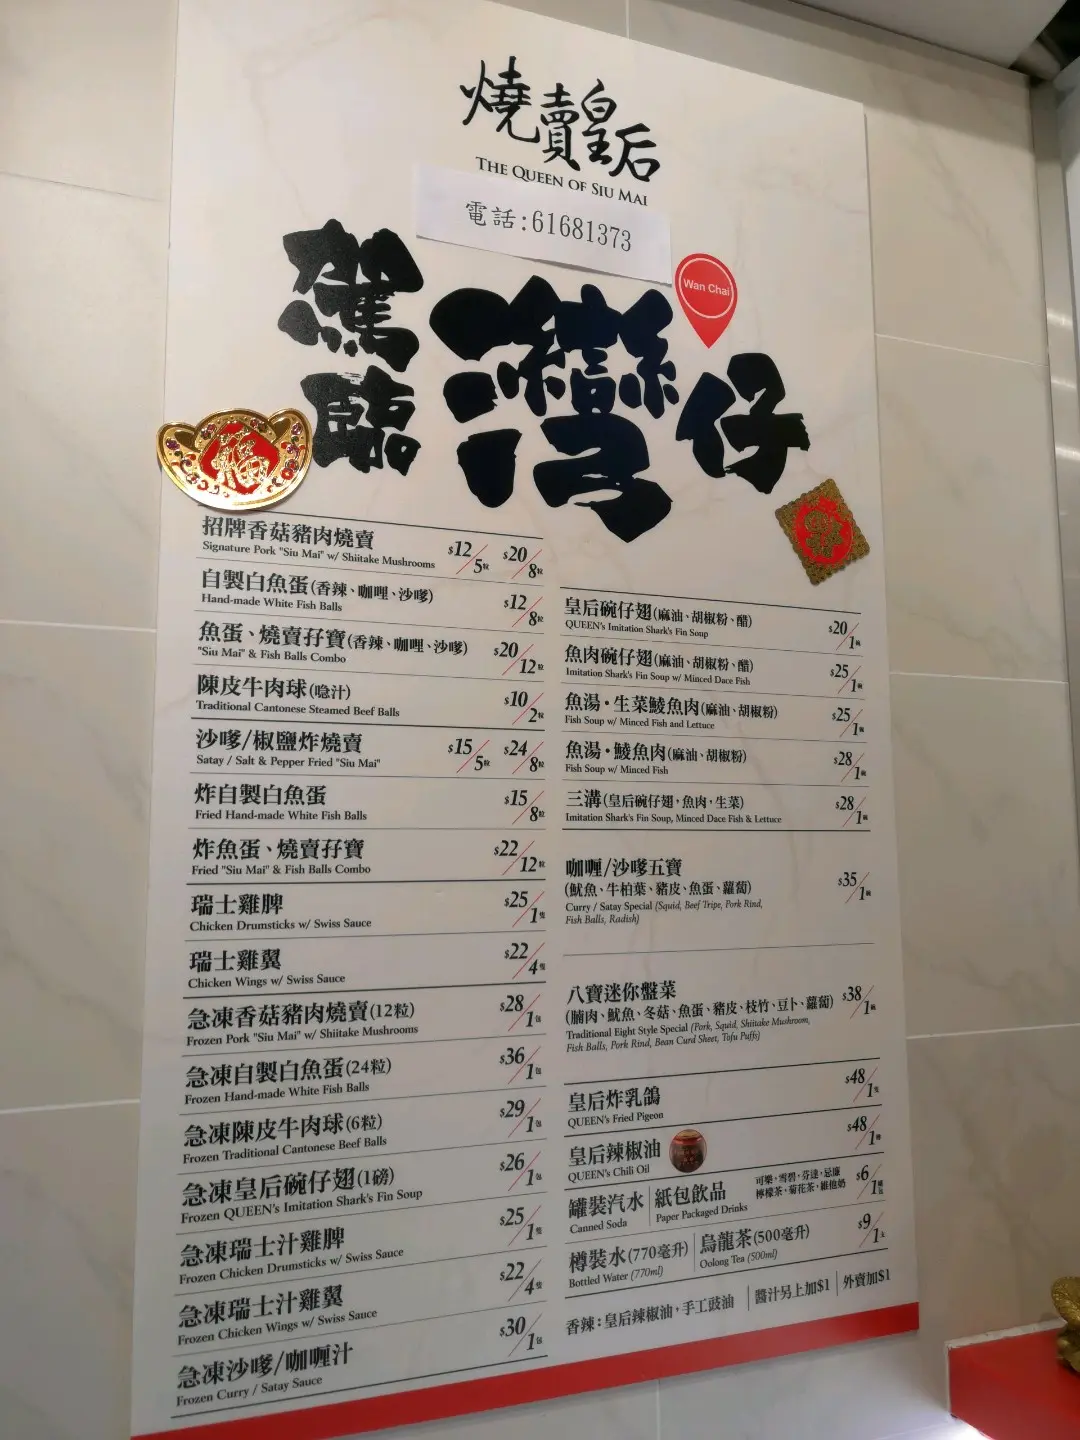 燒賣皇后
THE QUEEN OF SIU MAI
電話:61681373
Wan Chai
駕臨
灣仔
福
招牌香菇豬肉燒賣 $12/5粒 $20/8粒
Signature Pork "Siu Mai" w/ Shiitake Mushrooms
自製白魚蛋(香辣、咖哩、沙嗲) $12/8粒
Hand-made White Fish Balls
魚蛋、燒賣孖寶(香辣、咖哩、沙嗲) $20/12粒
"Siu Mai" & Fish Balls Combo
陳皮牛肉球(喼汁) $10/2粒
Traditional Cantonese Steamed Beef Balls
沙嗲/椒鹽炸燒賣 $15/5粒 $24/8粒
Satay / Salt & Pepper Fried "Siu Mai"
炸自製白魚蛋 $15/8粒
Fried Hand-made White Fish Balls
炸魚蛋、燒賣孖寶 $22/12粒
Fried "Siu Mai" & Fish Balls Combo
瑞士雞脾 $25/1隻
Chicken Drumsticks w/ Swiss Sauce
瑞士雞翼 $22/4隻
Chicken Wings w/ Swiss Sauce
急凍香菇豬肉燒賣(12粒) $28/1包
Frozen Pork "Siu Mai" w/ Shiitake Mushrooms
急凍自製白魚蛋(24粒) $36/1包
Frozen Hand-made White Fish Balls
急凍陳皮牛肉球(6粒) $29/1包
Frozen Traditional Cantonese Beef Balls
急凍皇后碗仔翅(1磅) $26/1包
Frozen QUEEN's Imitation Shark's Fin Soup
急凍瑞士汁雞脾 $25/1隻
Frozen Chicken Drumsticks w/ Swiss Sauce
急凍瑞士汁雞翼 $22/4隻
Frozen Chicken Wings w/ Swiss Sauce
急凍沙嗲/咖喱汁 $30/1包
Frozen Curry / Satay Sauce
皇后碗仔翅(麻油、胡椒粉、醋) $20/1碗
QUEEN's Imitation Shark's Fin Soup
魚肉碗仔翅(麻油、胡椒粉、醋) $25/1碗
Imitation Shark's Fin Soup w/ Minced Dace Fish
魚湯·生菜鯪魚肉(麻油、胡椒粉) $25/1碗
Fish Soup w/ Minced Fish and Lettuce
魚湯·鯪魚肉(麻油、胡椒粉) $28/1碗
Fish Soup w/ Minced Fish
三溝(皇后碗仔翅，魚肉，生菜) $28/1碗
Imitation Shark's Fin Soup, Minced Dace Fish & Lettuce
咖喱/沙嗲五寶 $35/1碗
(魷魚、牛柏葉、豬皮、魚蛋、蘿蔔)
Curry / Satay Special (Squid, Beef Tripe, Pork Rind,
Fish Balls, Radish)
八寶迷你盤菜 $38/1碗
(腩肉、魷魚、冬菇、魚蛋、豬皮、枝竹、豆卜、蘿蔔)
Traditional Eight Style Special (Pork, Squid, Shiitake Mushroom,
Fish Balls, Pork Rind, Bean Curd Sheet, Tofu Puffs)
皇后炸乳鴿 $48/1隻
QUEEN's Fried Pigeon
皇后辣椒油 $48/1樽
QUEEN's Chili Oil
罐裝汽水 紙包飲品 可樂，雪碧，芬達，忌廉 $6/1
Canned Soda Paper Packaged Drinks 檸檬茶，菊花茶，維他奶
樽裝水(770毫升) 烏龍茶(500毫升) $9/1支
Bottled Water (770ml) Oolong Tea (500ml)
香辣：皇后辣椒油，手工豉油 醬汁另上加$1 外賣加$1